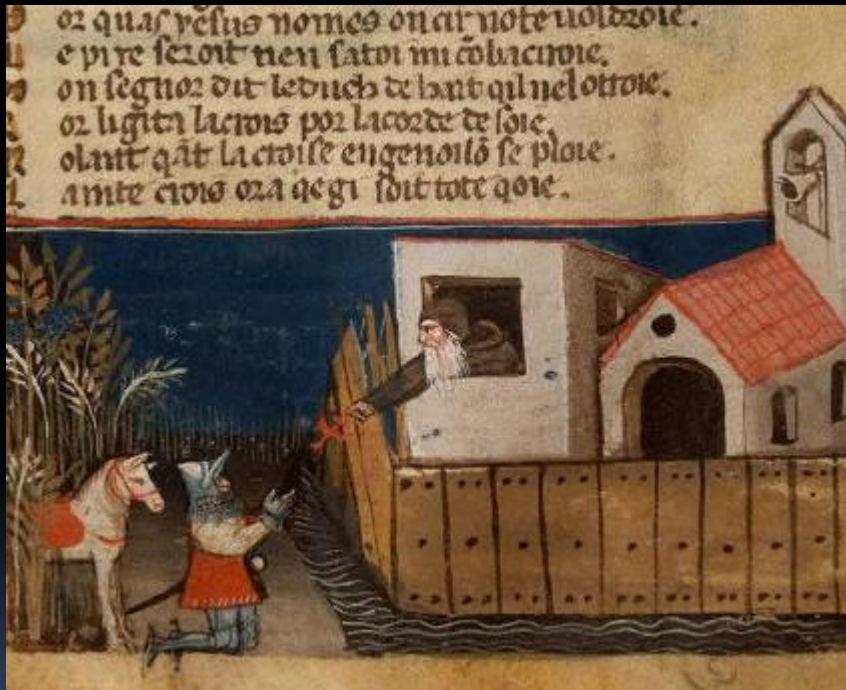 or quas yesus nomes on cir note uoldroie.
e pire seroit nen satoi mi cōbaciroie.
on segnor dit le duch de bart qil nel ottroie.
or ligita la crois por la corde de soie.
olant qāt la croise engenoilō se ploie.
ainte crois ora qe gi soit tote qoie.